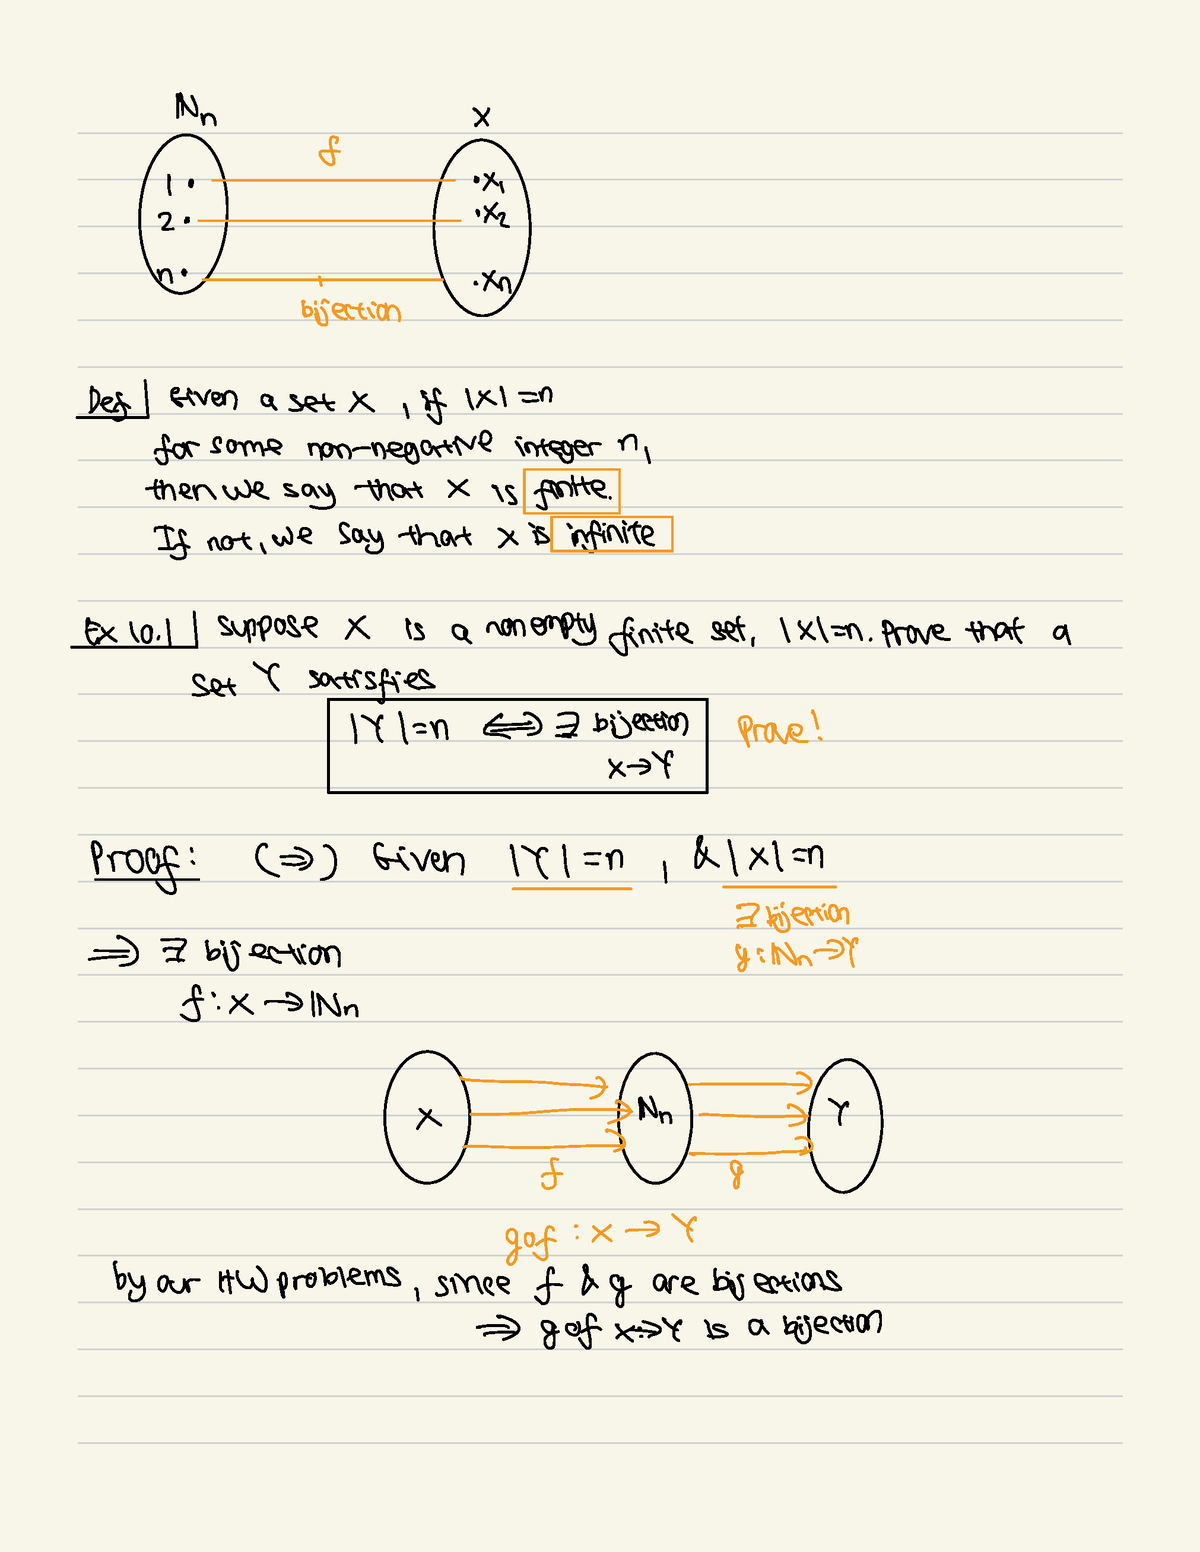 ℕn
X
f
1 ·
· x1
2 ·
· x2
n ·
· xn
bijection
Def Given a set X, if |X| = n
for some non-negative integer n,
then we say that X is finite.
If not, we say that X is infinite
Ex 10.1 Suppose X is a nonempty finite set, |X|=n. Prove that a
set Y satisfies
|Y|=n ⟺ ∃ bijection Prove!
X→Y
Proof: (⇒) Given |Y|=n, & |X|=n
∃ bijection
g: ℕn→Y
⇒ ∃ bijection
f: X→ℕn
X ℕn Y
f g
g∘f : X → Y
by our HW problems, since f & g are bijections
⇒ g∘f X→Y is a bijection